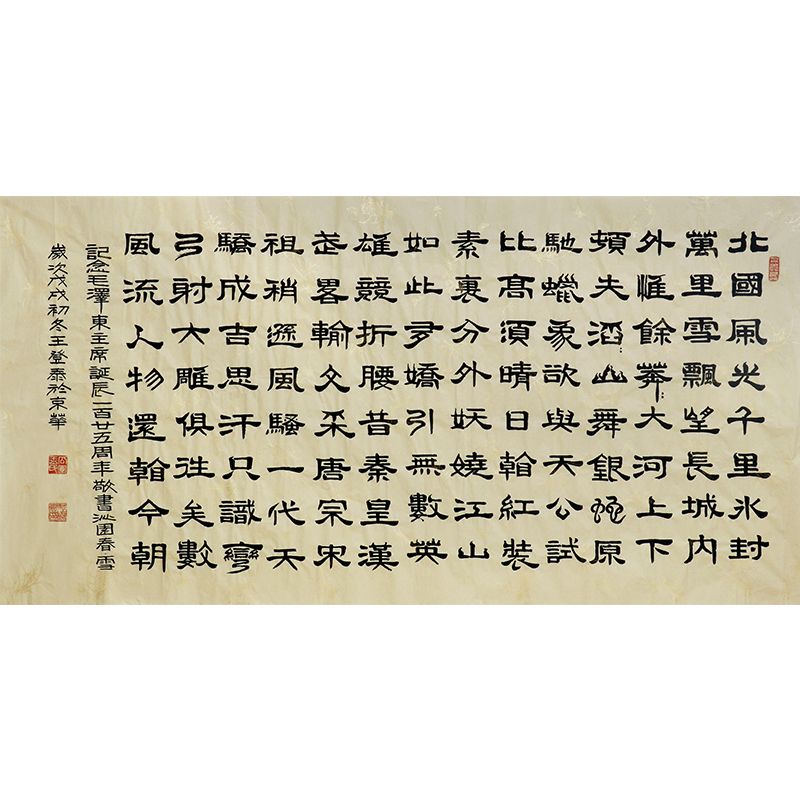 北國風光千里氷封
萬里雪飄望長城內
外惟餘莽〻大河上下
頓失滔〻山舞銀蛇原
馳蠟象欲與天公試
比高須晴日看紅裝
素裹分外妖嬈江山
如此多嬌引無數英
雄競折腰昔秦皇漢
武畧輸文采唐宗宋
祖稍遜風騷一代天
驕成吉思汗只識彎
弓射大雕俱往矣數
風流人物還看今朝
記念毛澤東主席誕辰一百廿五周年敬書沁園春雪
歲次戊戌初冬王登泰於京華